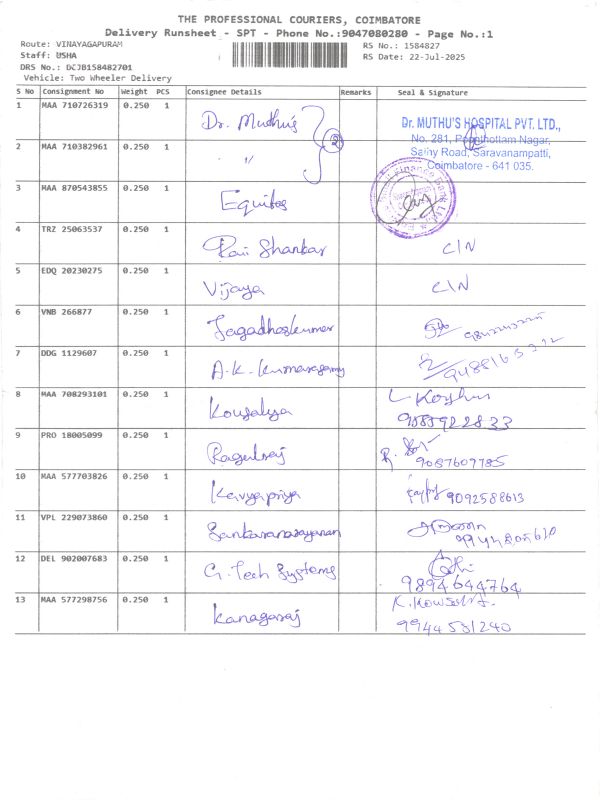 THE PROFESSIONAL COURIERS, COIMBATORE
Delivery Runsheet - SPT - Phone No.:9047080280 - Page No.:1
Route: VINAYAGAPURAM
Staff: USHA
DRS No.: DCJB158482701
Vehicle: Two Wheeler Delivery
RS No.: 1584827
RS Date: 22-Jul-2025
S No Consignment No Weight PCS Consignee Details Remarks Seal & Signature
1 MAA 710726319 0.250 1 Dr. Muthu's
2 MAA 710382961 0.250 1 "
2
Dr. MUTHU'S HOSPITAL PVT. LTD.,
No. 281, Poonthottam Nagar,
Sathy Road, Saravanampatti,
Coimbatore - 641 035.
3 MAA 870543855 0.250 1 Equitas
4 TRZ 25063537 0.250 1 Ravi Shankar C/N
5 EDQ 20230275 0.250 1 Vijaya C/N
6 VNB 266877 0.250 1 Jagadheskumar
7 DDG 1129607 0.250 1 A.K. Kumarasamy
8 MAA 708293101 0.250 1 Kousalya
9 PRO 18005099 0.250 1 Ragulraj 9087609785
10 MAA 577703826 0.250 1 Kavyapriya 9092588613
11 VPL 229073860 0.250 1 Sankaranarayanan
12 DEL 902007683 0.250 1 G. Tech Systems 9894644764
13 MAA 577298756 0.250 1 Kanagaraj
9944531240